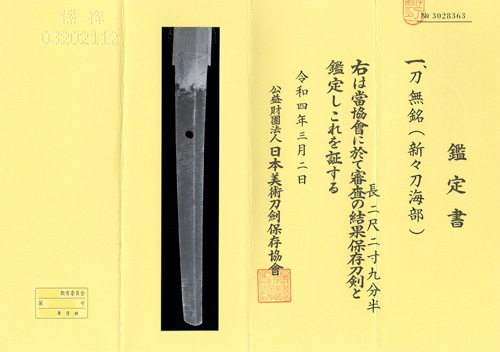 № 3028363
鑑定書
一、刀 無銘(新々刀海部)
長 二尺二寸九分半
右は當協會に於て審査の結果保存刀剣と
鑑定しこれを証する
令和四年三月二日
公益財團法人 日本美術刀剣保存協會
保存
03202112
教育委員会
第 号
年 月 日